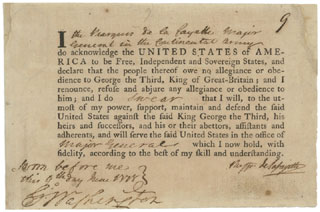 9
I the Marquis de la Fayette Major
General in the Continental Army
do acknowledge the UNITED STATES of AME-
RICA to be Free, Independent and Sovereign States, and
declare that the people thereof owe no allegiance or obe-
dience to George the Third, King of Great-Britain; and I
renounce, refuse and abjure any allegiance or obedience to
him; and I do Swear that I will, to the ut-
most of my power, support, maintain and defend the said
United States against the said King George the Third, his
heirs and successors, and his or their abettors, assistants and
adherents, and will serve the said United States in the office of
Major General which I now hold, with
fidelity, according to the best of my skill and understanding.
Sworn before me
this 9th day June 1778
Mqs. de Lafayette
GWashington